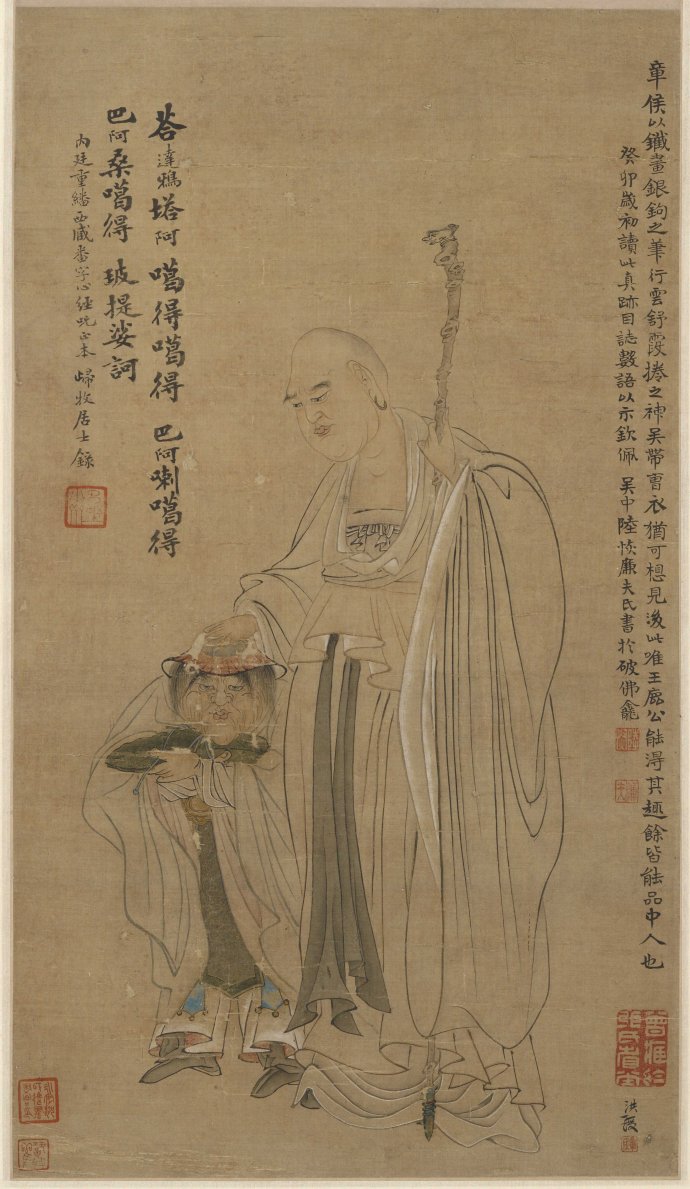 章侯以鐵畫銀鉤之筆行雲舒霞捲之神吳帶曹衣猶可想見後此唯王廉公能得其趣餘皆能品中人也
癸卯歲初讀此真跡因誌數語以示欽佩 吳中陸恢廉夫氏書於破佛龕
荅達鴉塔阿 噶得噶得 巴阿喇噶得
巴阿桑噶得 玻提娑訶
內廷重繙西藏番字心經咒正本 歸牧居士錄
洪綬